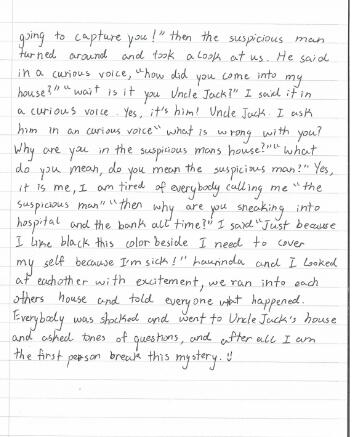 going to capture you!" then the suspicious man
turned around and took a look at us. He said
in a curious voice, "how did you come into my
house?" "wait is it you Uncle Jack?" I said it in
a curious voice. Yes, it's him! Uncle Jack. I ask
him in an curious voice "what is wrong with you?
Why are you in the suspicious mans house?" "what
do you mean, do you mean the suspicious man?" Yes,
it is me, I am tired of everybody calling me "the
suspicious man" "then why are you sneaking into
hospital and the bank all time?" I said "Just because
I like black this color beside I need to cover
my self because I'm sick!" and I looked
at eachother with excitement, we ran into each
others house and told everyone what happened.
Everybody was shocked and went to Uncle Jack's house
and ashed tones of questions, and after all I am
the first person break this mystery. :)